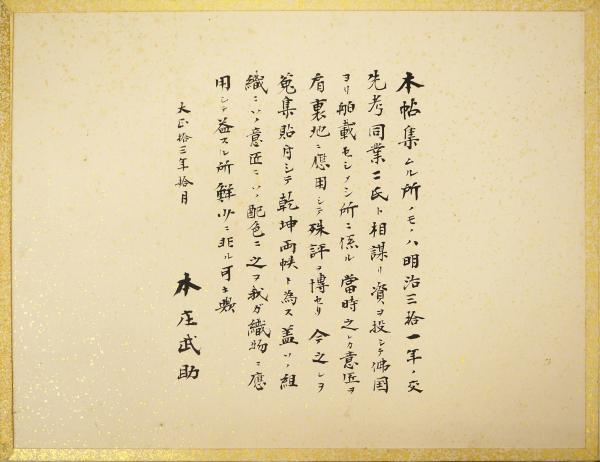 本帖集ムル所ノモノハ明治三拾一年ノ交
先考同業二氏ト相謀リ資ヲ投シテ佛国
ヨリ舶載セシメシ所ニ係ル當時之レカ意匠ヲ
肩裏地ニ應用シテ殊評ヲ博セリ今之レヲ
蒐集貼付シテ乾坤両帙ト為ス蓋シ組
織ニ意匠ニ配色ニ之ヲ我ガ織物ニ應
用シテ益スル所鮮少ニ非ル可キ歟
大正拾三年拾月
本庄武助